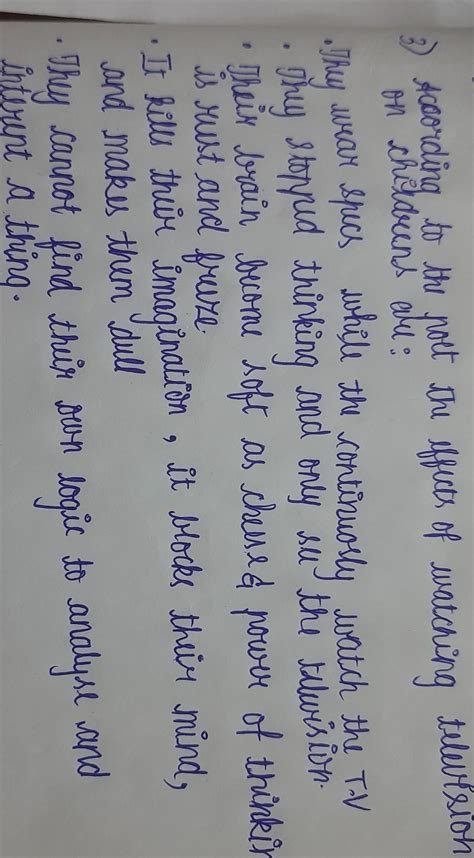 3) According to the poet the effects of watching television
on childrens are:
• They wear specs while the continuosly watch the T.V
• They stopped thinking and only see the television.
• Their brain become soft as cheese & power of thinkin
is rust and freeze.
• It kills their imagination, it blocks their mind,
and makes them dull
• They cannot find their own logic to analyse and
interupt a thing.